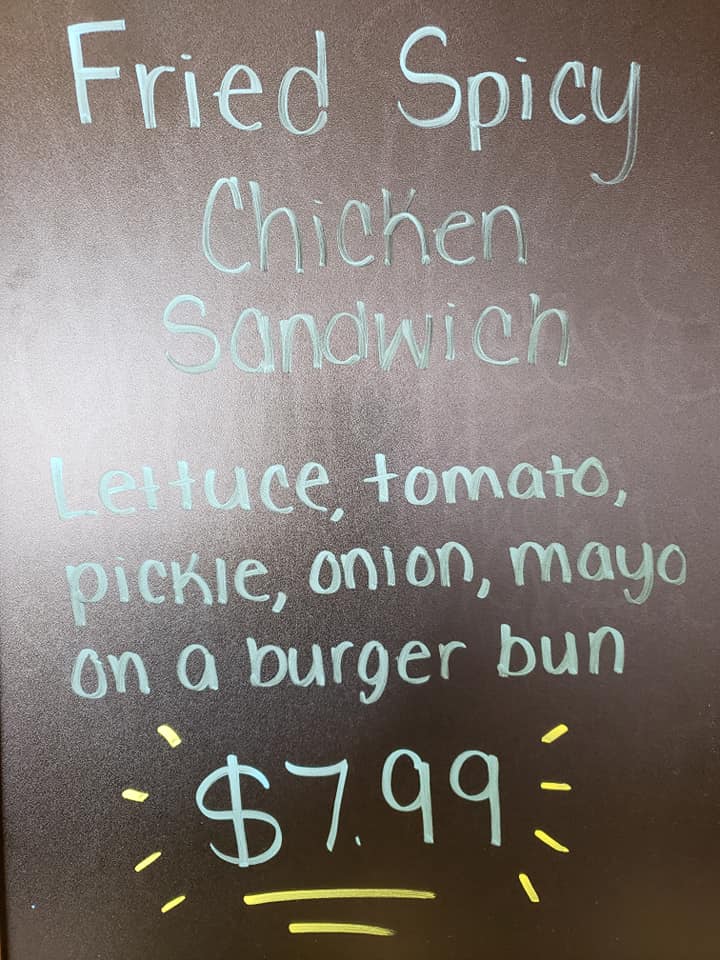 Fried Spicy
Chicken
Sandwich
Lettuce, tomato,
pickle, onion, mayo
on a burger bun
$7.99